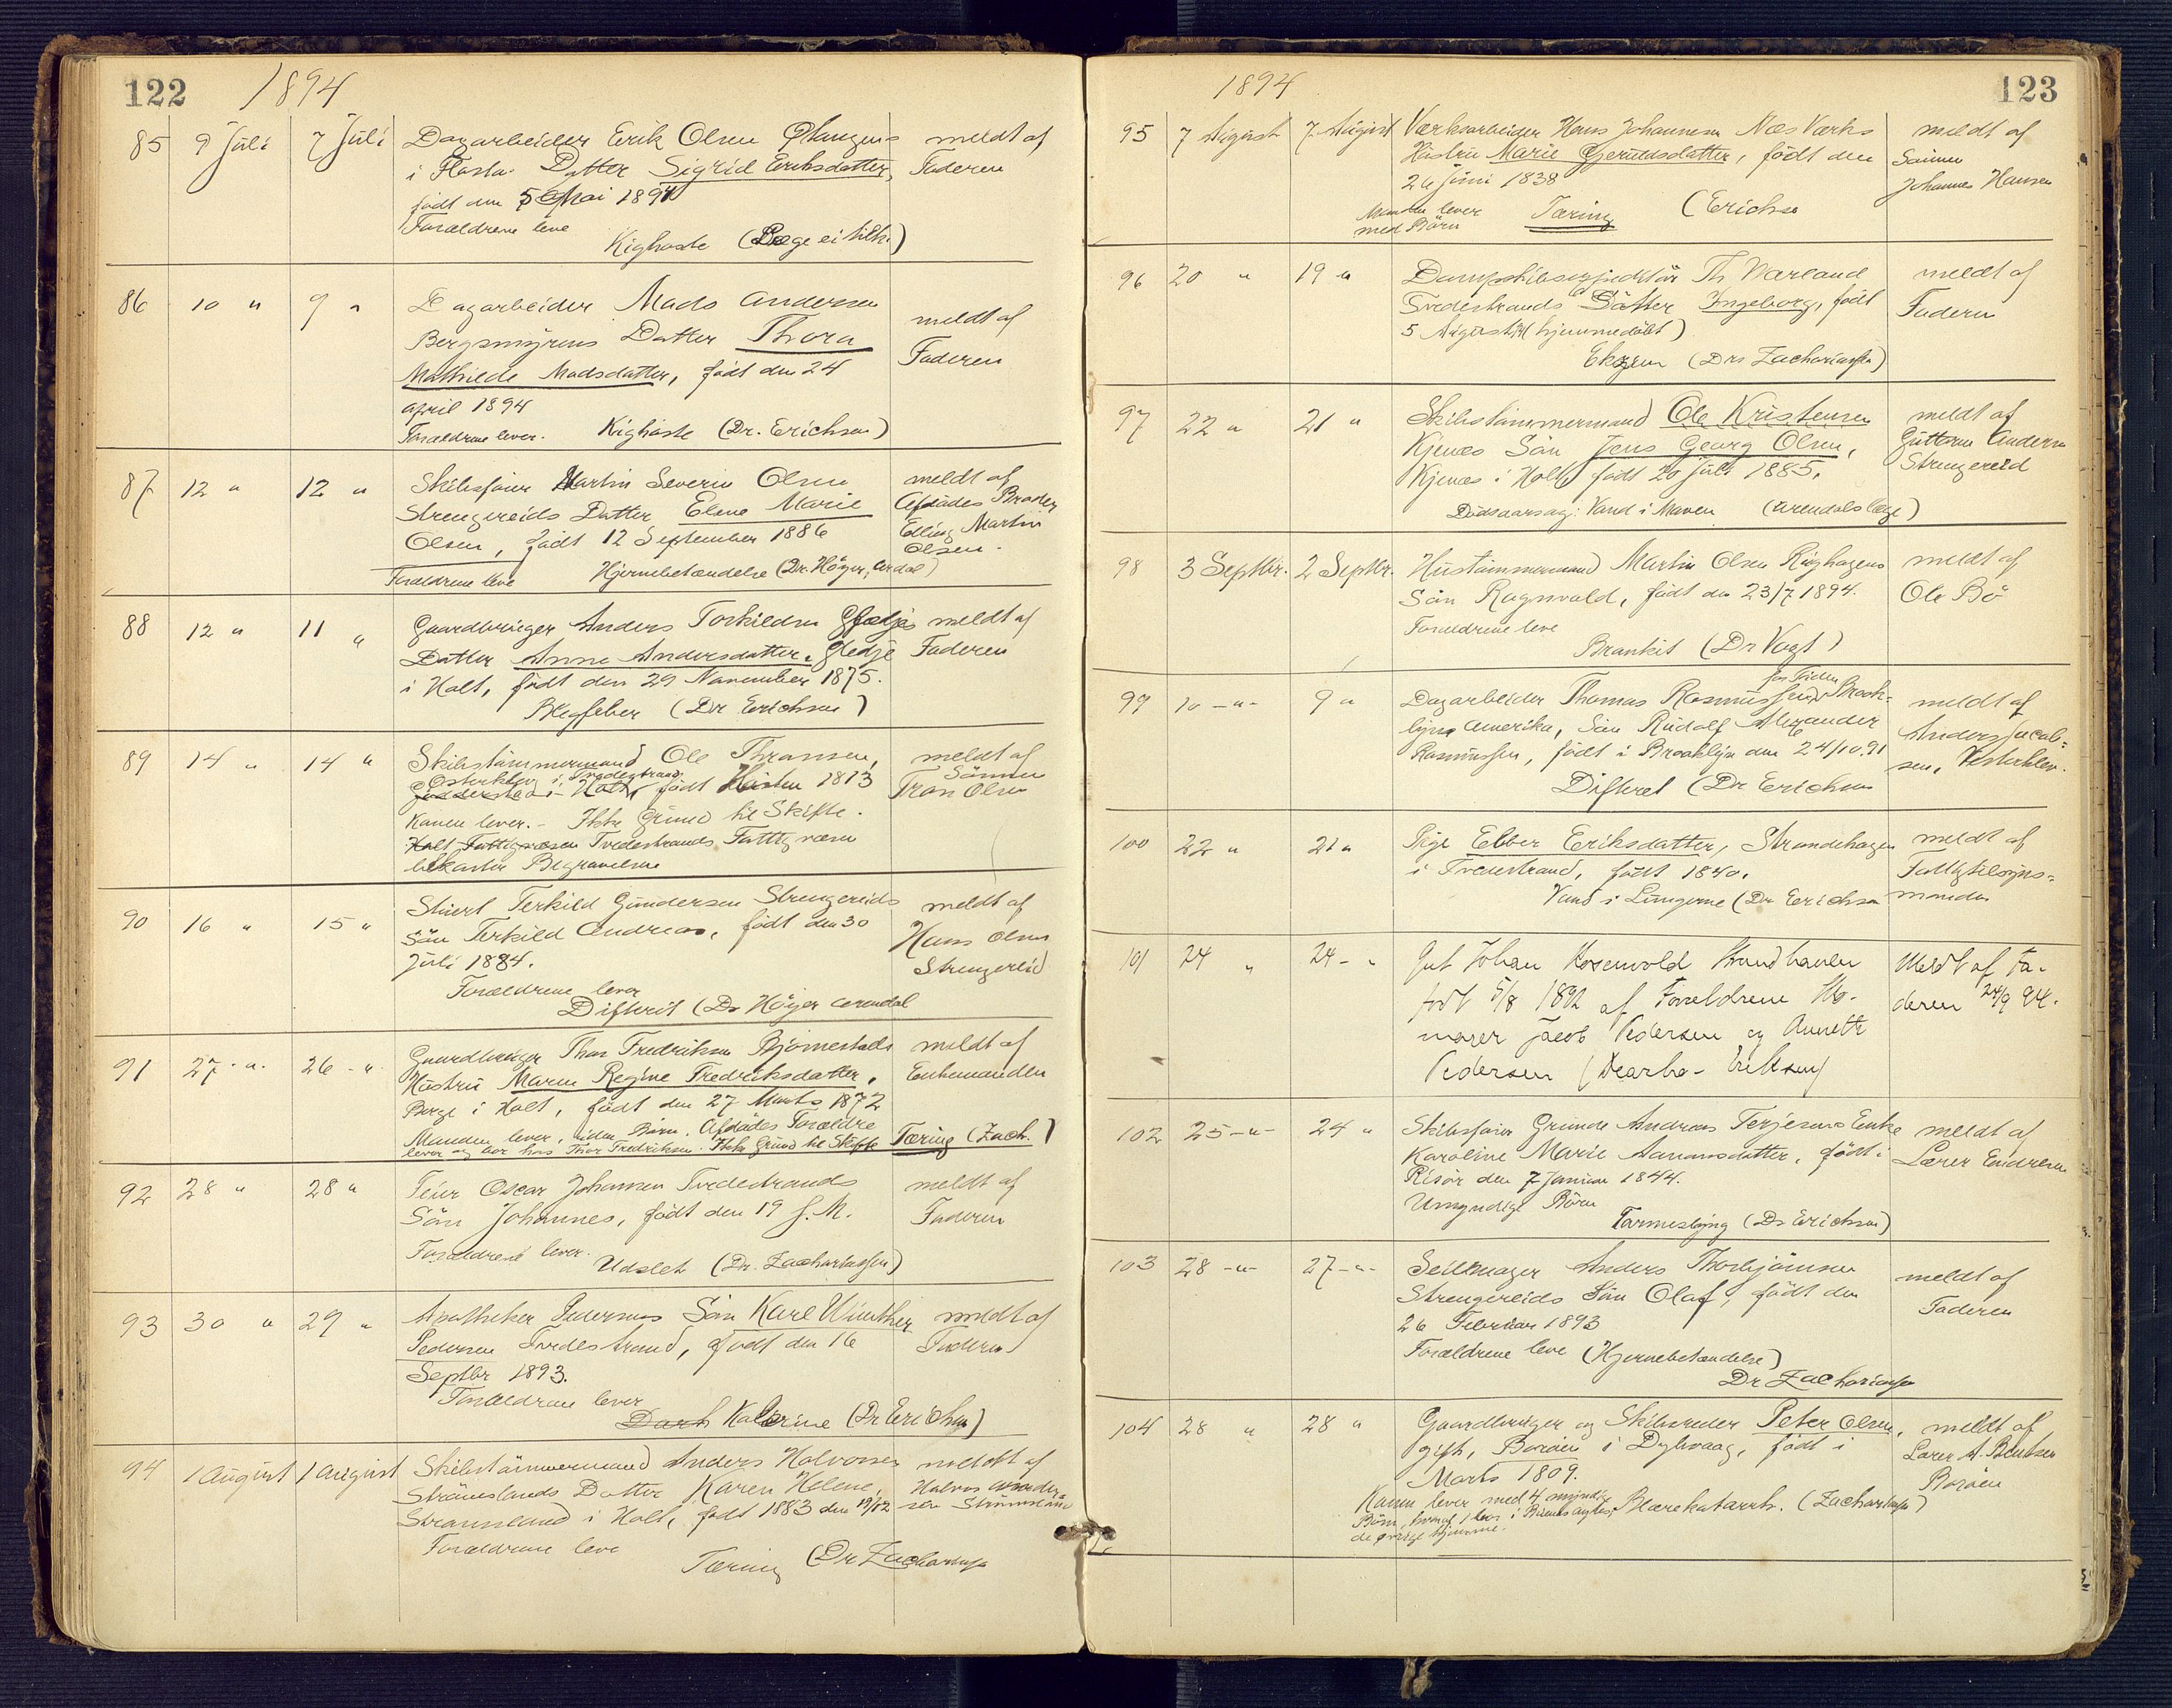 122 1894
85 9 Juli 7 Juli Dagarbeider Erik Olsen meldt af
i Flosta Datter Sigrid Eriksdatter, Faderen
født den 5 Mai 1894
Forældrene leve
Kighoste (Læge ei tilk.)
86 10 " 9 " Dagarbeider Mads Andersen
Bergsmyrens Datter Thora meldt af
Mathilde Madsdatter, født den 24 Faderen
april 1894
Forældrene lever. Kighoste (Dr. Erichsen)
87 12 " 12 " Skibsfører Martin Severin Olsen meldt af
Strengereids Datter Elene Marie Afdødes Broder
Olsen, født 12 September 1886 Elling Martin
Olsen.
Forældrene leve Hjernebetændelse (Dr. Höyer,
88 12 " 11 " Gaardbruger Anders Torkildsen Gledjes meldt af
Datter Anne Andersdatter, Gledje Faderen
i Holt, født den 29 November 1875.
(Dr Erichsen)
89 14 " 14 " Skibstömmermand Ole Thransen, meldt af
Österkleiv i Tvedestrand Sönnen
i Holt, født Høsten 1813 Tran Olsen
Konen lever. - Ikke Grund til Skifte.
Holt Fattigvæsen Tvedestrands Fattigvæsen
bekoster Begravelsen
90 16 " 15 " Stuert Terkild Gundersen Strengereids meldt af
Sön Terkild Andreas, født den 30 Hans Olsen
Juli 1884. Strengereid
Forældrene lever
Difterit (Dr Höyer Arendal
91 27 - " - 26 - " Gaardbruger Thor Fredriksen Bjørnestads meldt af
Hustru Maren Regine Fredriksdatter, Enkemanden
Berge i Holt, født den 27 Marts 1872
Manden lever, uden Børn. Afdødes Forældre
lever og bor hos Thor Fredriksen. Ikke Grund til Skifte Tæring (Zach.)
92 28 " 28 " Oscar Johansen Tvedestrands meldt af
Sön Johannes, født den 19 f. M. Faderen
Forældrene lever.
Udslet (Dr. Zachariassen)
93 30 " 29 " Apotheker Pedersens Sön Karl Winther meldt af
Pedersen Tvedestrand, født den 16 Faderen
Septbr 1893.
Forældrene lever
Kolerine (Dr Erichsen)
94 1 August 1 August Skibstömmermand Anders Halvorsen meldt af
Strömslands Datter Karen Helene, Halvor Ander-
Strömsland i Holt, født 1883 den 19/12 sen Strömsland
Forældrene leve
Tæring (Dr Zachariassen
1894 123
95 7 August 7 August Værksarbeider Hans Johannesen Næs Værks meldt af
Hustru Marie Gjeruldsdatter, født den Sönnen
26 Juni 1838 Johannes Hansen
Manden lever Tæring (Erichsen
med Børn
96 20 " 19 " Dampskibsexpeditör Th Værland meldt af
Tvedestrands Datter Ingeborg, født Faderen
5 August (hjemmedöbt)
Ekzem (Dr. Zachariassen)
97 22 " 21 " Skibstömmermand Ole Kristensen meldt af
Kjenes Sön Jens Georg Olsen, Guttorm Andersen
Kjenes i Holt, født 20 Juli 1885. Strengereid
Dødsaarsag: Vand i Maven (Arendals Læge)
98 3 Septbr. 2 Septbr. Hustömmermand Martin Olsen meldt af
Sön Ragnvald, født den 23/7 1894. Ole Bö
Forældrene leve
Bronkit (Dr Vogt)
for Tiden
99 10 - " - 9 " Dagarbeider Thomas Rasmussens Brook- meldt af
lyn Amerika, Sön Rudolf Alexander Anders Jacob-
Rasmussen, født i Brooklyn den 24/10.91 sen, Vesterkleiv.
Difterit (Dr Erichsen
100 22 " 21 " Pige Ebber Eriksdatter, Strandehagen meldt af
i Tvedestrand, født 1840. Fattigtilsyns-
Vand i Lungerne (Dr Erichsen manden
101 24 " 24 - " Gut Johan Rosenvold Meldt af Fa-
født 5/8 1892 af Forældrene deren 24/9 94.
mager Jacob Pedersen og Annette
Pedersen
102 25 - " - 24 " Skibsfører Grunde Andreas Terjesens Enke meldt af
Karoline Marie Aanonsdatter, født i Lærer Endresen
Risör den 7 Januar 1844.
Umyndige Børn
Tarmeslyng (Dr Erichsen)
103 28 - " - 27 - " - Seilmager Anders Thorbjörnsen meldt af
Strengereids Sön Olaf, födt den Faderen
26 Februar 1893
Forældrene leve (Hjernebetændelse)
Dr Zachariassen
104 28 " 28 " Gaardbruger og Skibsreder Peter Olsen, meldt af
gift, Borøen i Dybvaag, født i Lærer A. Bentsen
Marts 1809. Borøen
Konen lever med 4 myndige Blærekatarrh. (Zachariassen)
Börn, hvoraf 1 bor i Buenos ayres,
de øvrige hjemme.